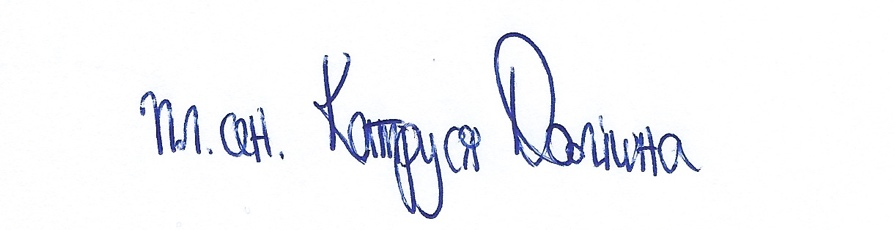 пл. сен. Катруся Долина